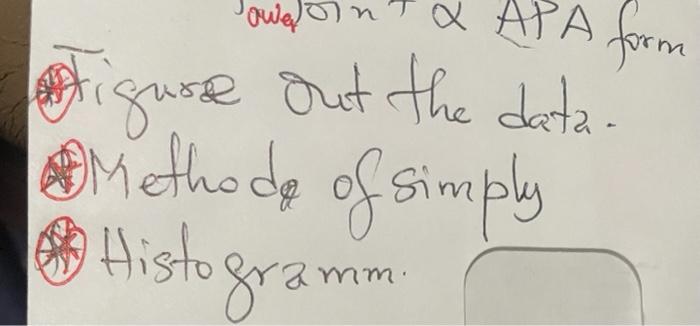 owerpoint & APA form
Figure out the data.
Methode of simply
Histogramm.